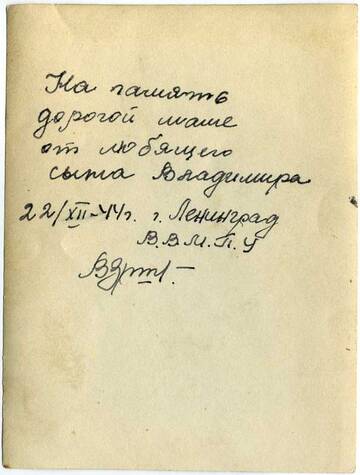 На память
дорогой маме
от любящего
сына Владимира
22/XII-44г. г. Ленинград
В.В.М.П.У